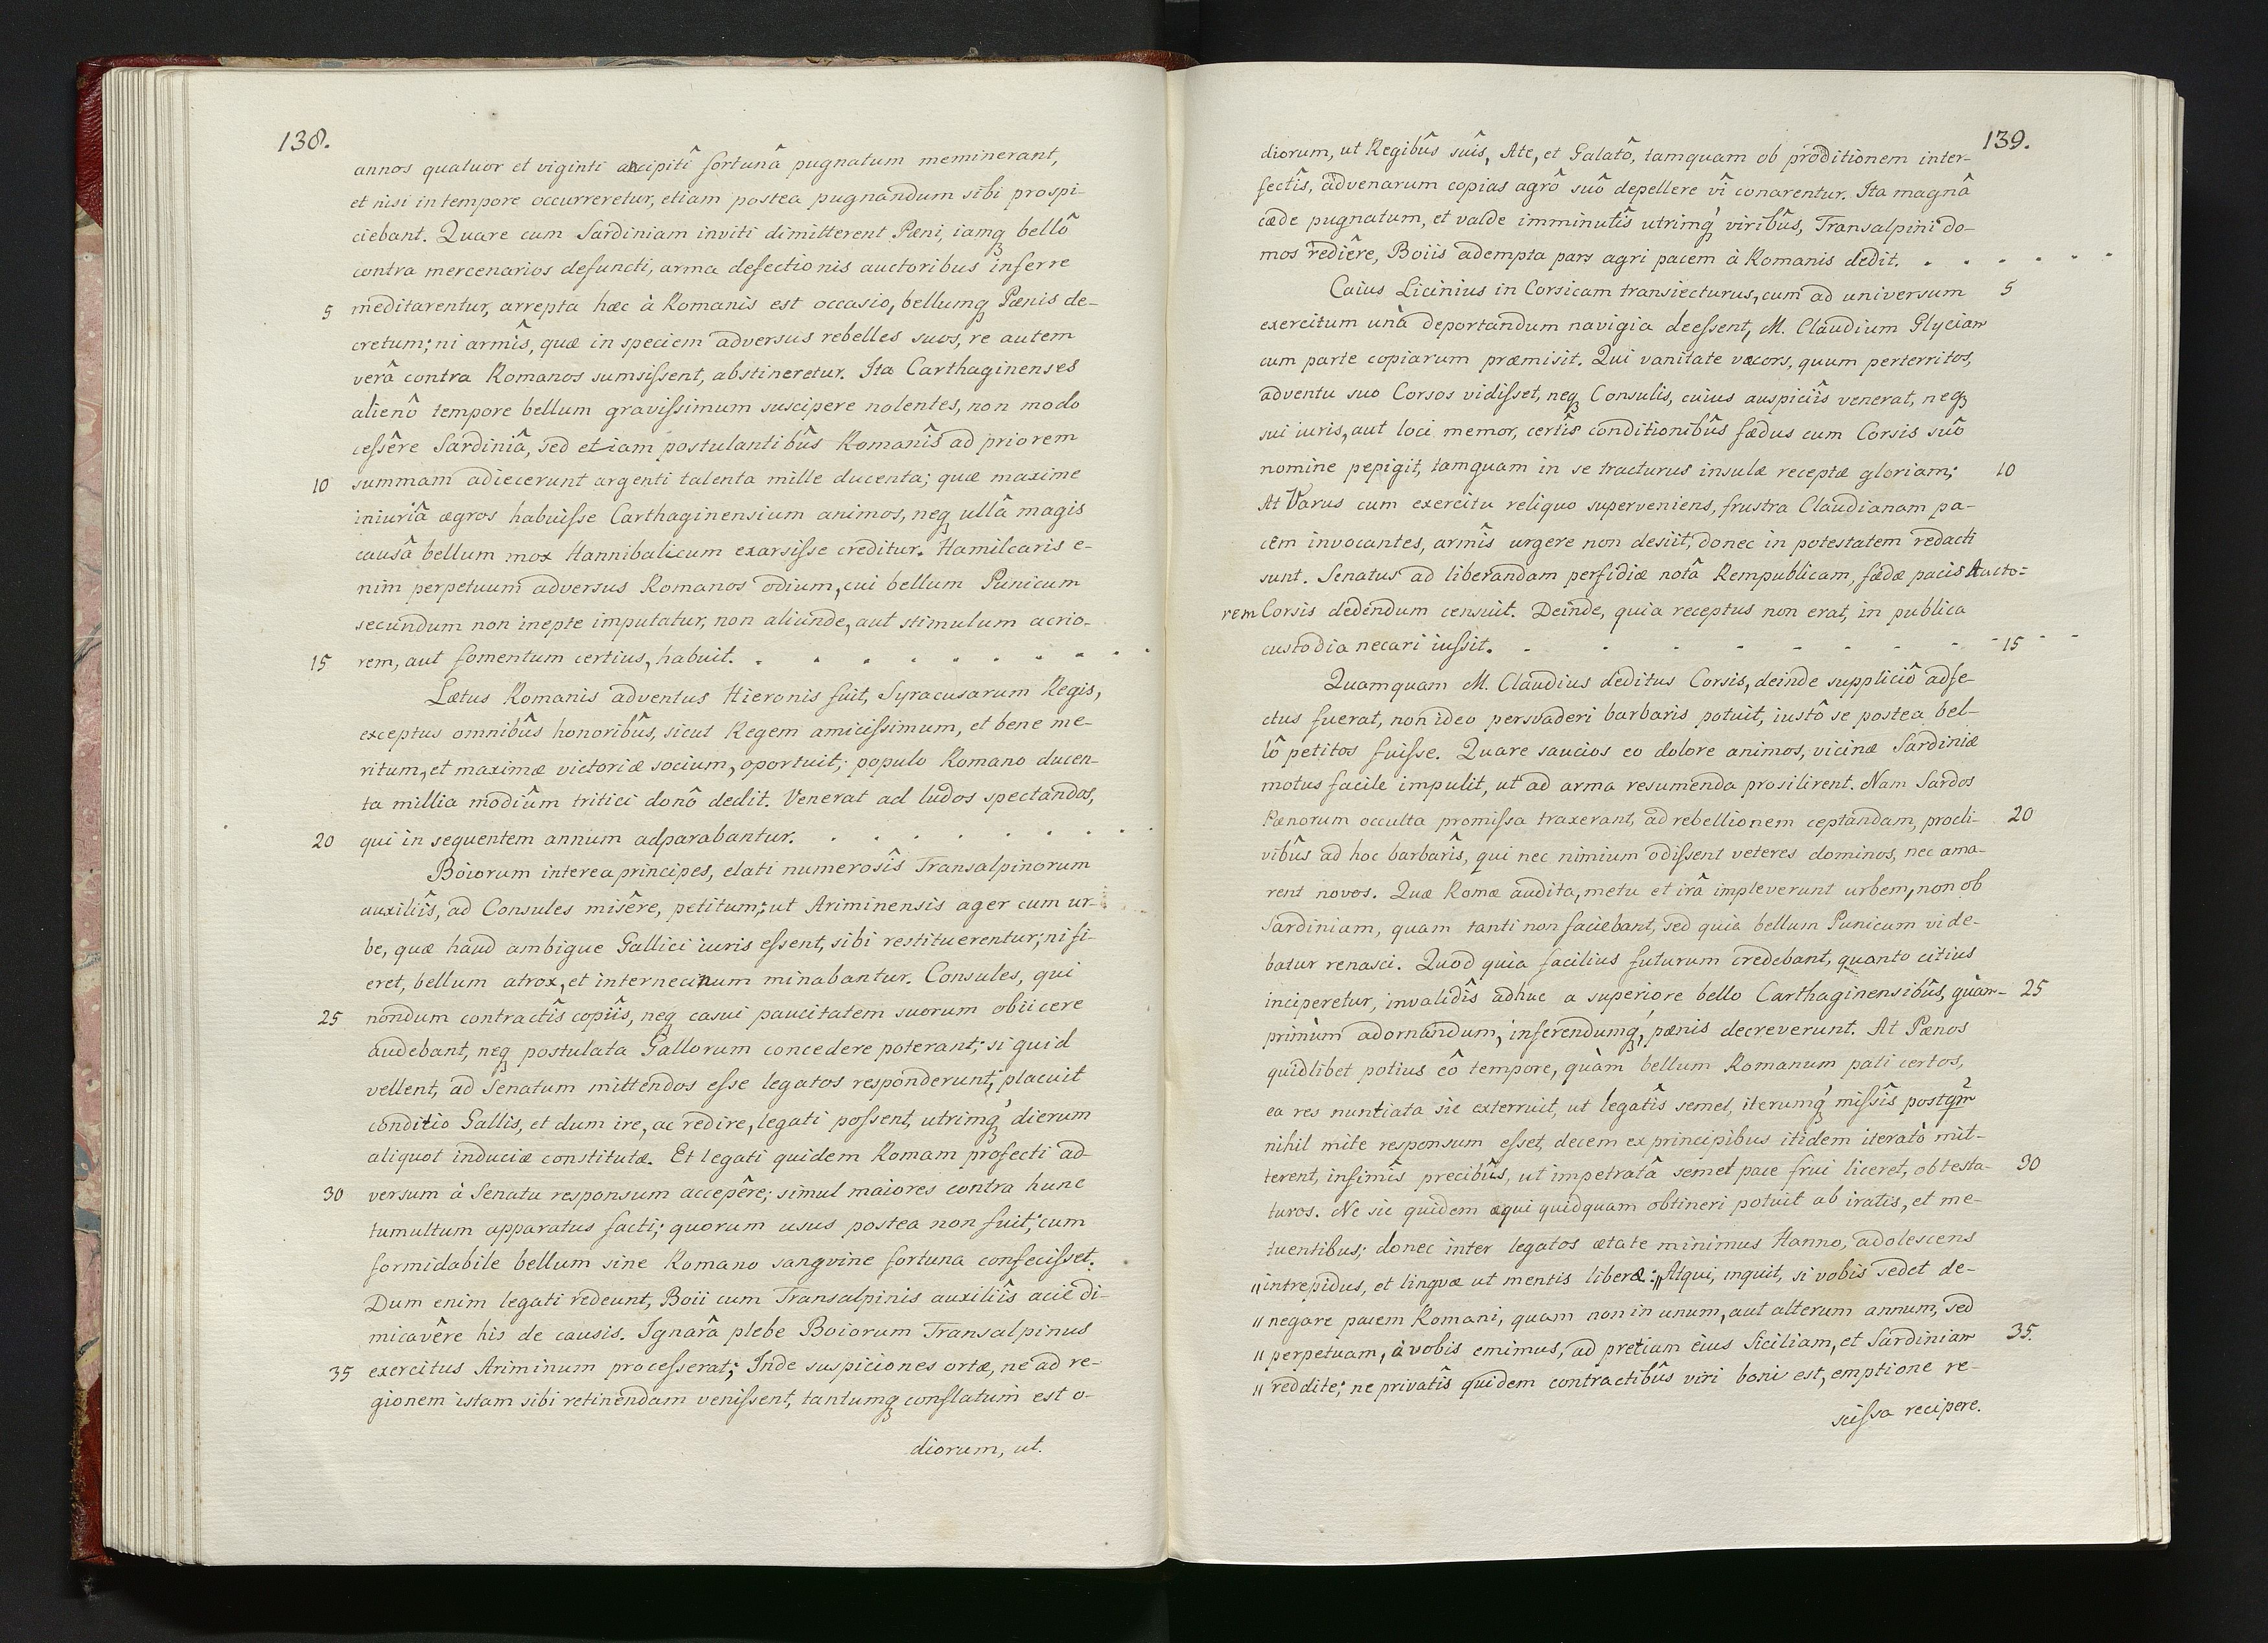 138.
annos quatuor et viginti ancipitî fortunâ pugnatum meminerant,
et nisi in tempore occurreretur, etiam postea pugnandum sibi prospi-
ciebant. Quare cum Sardiniam inviti dimitterent Pæni, iamq bellô
contra mercenarios defuncti, arma defectionis auctoribus inferre
5 meditarentur, arrepta hæc à Romanis est occasio, bellumq Pænis de-
cretum; ni armîs, quæ in speciem adversus rebelles suos, re autem
verâ contra Romanos sumsissent, abstineretur. Ita Carthaginenses
alienô tempore bellum gravissimum suscipere nolentes, non modo
cessêre Sardiniâ, sed etiam postulantibûs Romanîs ad priorem
10 summam adiecerunt argenti talenta mille ducenta; quæ maxime
iniuriâ ægros habuisse Carthaginensium animos, neq ullâ magis
causâ bellum mox Hannibalicum exarsisse creditur. Hamilcaris e-
nim perpetuum adversus Romanos odium, cui bellum Punicum
secundum non inepte imputatur, non aliunde, aut stimulum acrio-
15 rem, aut fomentum certius, habuit. . . . . . . . . .
Lætus Romanis adventus Hieronis fuit, Syracusarum Regis,
exceptus omnibûs honoribûs, sicut Regem amicissimum, et bene me-
ritum, et maximæ victoriæ socium, oportuit; populo Romano ducen-
ta millia modiûm tritici donô dedit. Venerat ad ludos spectandos,
20 qui in sequentem annum adparabantur. . . . . . . . .
Boiorum interea principes, elati numerosîs Transalpinorum
auxiliîs, ad Consules misêre, petitum; ut Ariminensis ager cum ur-
be, quæ haud ambigue Gallici iuris essent, sibi restituerentur; ni fi-
eret, bellum atrox, et internecinum minabantur. Consules, qui
25 nondum contractîs copiîs, neq casui paucitatem suorum obiicere
audebant, neq postulata Gallorum concedere poterant; si quid
vellent, ad Senatum mittendos esse legatos responderunt; placuit
conditio Gallis, et dum ire, ac redire, legati possent, utrimq́ dierum
aliquot induciæ constitutæ. Et legati quidem Romam profecti ad-
30 versum à Senatu responsum accepêre; simul maiores contra hunc
tumultum apparatus facti; quorum usus postea non fuit; cum
formidabile bellum sine Romano sangvine fortuna confecisset.
Dum enim legati redeunt, Boii cum Transalpinis auxiliîs acie di-
micavêre his de causis. Ignarâ plebe Boiorum Transalpinus
35 exercitus Ariminum processerat; Inde suspiciones ortæ, ne ad re-
gionem istam sibi retinendam venissent, tantumq conflatum est o-
diorum, ut.
139.
diorum, ut Regibûs suîs, Ate, et Galatô, tamquam ob proditionem inter-
fectîs, advenarum copias agrô suô depellere vî conarentur. Ita magnâ
cæde pugnatum, et valde imminutîs utrimq́ viribûs, Transalpini do-
mos rediêre, Boiis adempta pars agri pacem à Romanis dedit. . . . . . .
Caius Licinius in Corsicam transiecturus, cum ad universum 5
exercitum unà deportandum navigia deessent, M. Claudium Glyciam
cum parte copiarum præmisit. Qui vanitate vecors, quum perterritos,
adventu suo Corsos vidisset, neq Consulis, cuius auspiciîs venerat, neq
sui iuris, aut loci memor, certîs conditionibûs fædus cum Corsis suô
nomine pepigit, tamquam in se tracturus insulæ receptæ gloriam; 10
At Varus cum exercitu reliquo superveniens, frustra Claudianam pa-
cem invocantes, armîs urgere non desiit, donec in potestatem redacti
sunt. Senatus ad liberandam perfidiæ notâ Rempublicam, fædæ pacis Aucto-
rem Corsis dedendum censuit. Deinde, quia receptus non erat, in publica
custodia necari iussit. . . . . . . . . 15
Quamquam M. Claudius deditus Corsis, deinde suppliciô adfe-
ctus fuerat, non ideo persvaderi barbaris potuit, iustô se postea bel-
lô petitos fuisse. Quare saucios eo dolore animos, vicinæ Sardiniæ
motus facile impulit, ut ad arma resumenda prosilirent. Nam Sardos
Pænorum occulta promissa traxerant, ad rebellionem ceptandam, procli- 20
vibûs ad hoc barbarîs, qui nec nimium odissent veteres dominos, nec ama-
rent novos. Quæ Romæ audita, metu et irâ impleverunt urbem, non ob
Sardiniam, quam tanti non faciebant, sed quia bellum Punicum vide-
batur renasci. Quod quia facilius futurum credebant, quanto citius
inciperetur, invalidîs adhuc a superiore bello Carthaginensibûs, quàm- 25
primùm adornandum, inferendumq, pænis decreverunt. At Pænos
quidlibet potius eô tempore, quàm bellum Romanum pati certos,
ea res nuntiata sic exterruit, ut legatîs semel, iterumq́ missîs postqm
nihil mite responsum esset, decem ex principibus itidem iteratò mit-
terent, infimîs precibûs, ut impetratâ semel pace frui liceret, obtesta- 30
turos. Ne sic quidem æqui quidquam obtineri potuit ab iratis, et me-
tuentibus; donec inter legatos ætate minimus Hanno, adolescens
„ intrepidus, et lingvæ ut mentis liberæ: „Atqui, inquit, si vobis sedet de-
„ negare pacem Romani, quam non in unum, aut alterum annum, sed
„ perpetuam, à vobis emimus, ad pretium eius Siciliam, et Sardiniam 35.
„ reddite; ne privatîs quidem contractibûs viri boni est, emptione re-
scissa recipere.